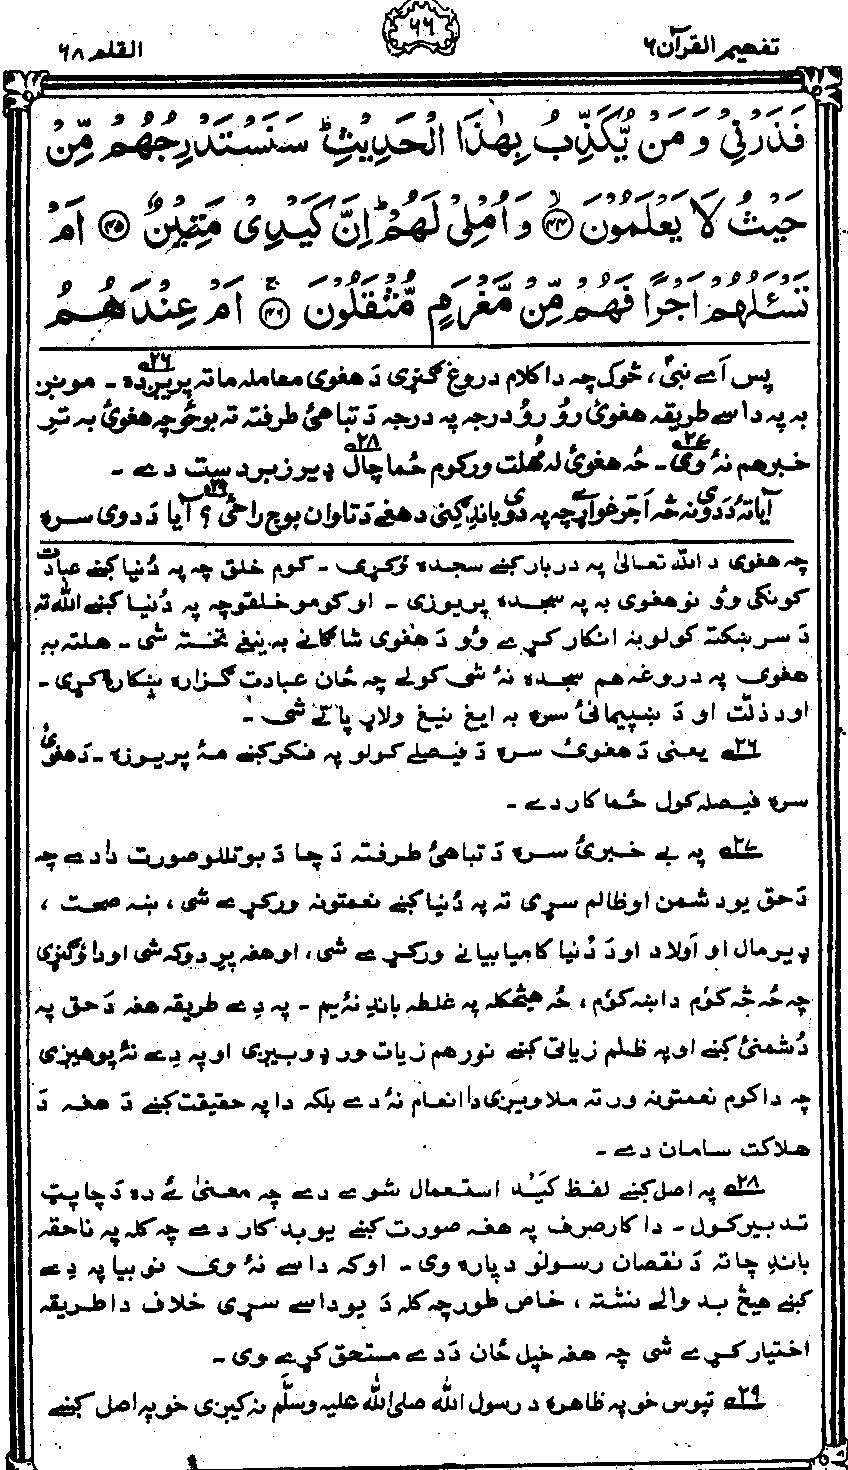 تفهيم القرآن ۶
۶۶
القلم ۶۸
فَذَرْنِيْ وَ مَنْ يُّكَذِّبُ بِهٰذَا الْحَدِيْثِ ؕ سَنَسْتَدْرِجُهُمْ مِّنْ
حَيْثُ لَا يَعْلَمُوْنَ ﴿۴۴﴾ وَ اُمْلِيْ لَهُمْ ؕ اِنَّ كَيْدِيْ مَتِيْنٌ ﴿۴۵﴾ اَمْ
تَسْـَٔلُهُمْ اَجْرًا فَهُمْ مِّنْ مَّغْرَمٍ مُّثْقَلُوْنَ ﴿۴۶﴾ اَمْ عِنْدَهُمُ
پس اَے نبیؐ، څوک چه دا کلام دروغ ګنړی دَ هغوی معامله ما ته پریږده ۲۶ ـ مونږ
به په داسے طریقه هغویٰ رؤ رؤ درجه په درجه دَ تباهیٔ طرفته ته بوځو چه هغویٔ به تر
خبر هم نهٔ وی ۲۷ ـ څه هغویٔ له مُهلت ورکوم ځما چال ۲۸ ډیر زبردست دے ـ
آیا تهٔ دَ دوی نه څه اَجر غواړے چه په دوی باندِ ګنی د هغے دَ تاوان بوج راځیٔ ۲۹ ؟ آیا دَ دوی سره
چه هغوی د الله تعالیٰ په دربار کښے سجده وٗکړی ـ کوم خلق چه په دُنیا کښے عبادت
کونکی وو نو هغوی به په سجده پریوزی ـ او کومو خلقو چه په دُنیا کښے الله ته
دَ سر ښکته کولو نه انکار کړے وو دَ هغوی شاګانے به نیغے تختے شی ـ هلته به
هغوی په دروغه هم سجده نهٔ شی کولے چه ځان عبادت ګزاره ښکاره کړی ـ
او د ذلّت او دَ ښپیمانیٔ سره به ایغ نیغ ولاړ پاتے شی ـ
۲۶ یعنی دَ هغویٔ سره دَ فیصلے کولو په فکر کښے مهٔ پریوزه ـ دَ هغویٔ
سره فیصله کول ځما کار دے ـ
۲۷ په بے خبریٔ سره دَ تباهیٔ طرفته دَ چا دَ بوتللو صورت دا دے چه
دَ حق یو دشمن او ظالم سړی ته په دُنیا کښے نعمتونه ورکړے شی، ښه صحت،
ډیر مال او اَولاد او دَ دُنیا کامیابیانے ورکړے شی، او هغه پرِ دوکه شی او دا وٗګنړی
چه څه څه کوٗم دا ښه کوٗم، څه هیڅکله په غلطه باندِ نهٔ یم ـ په دِے طریقه هغه دَ حق په
دُشمنیٔ کښے او په ظلم زیاتی کښے نور هم زیات ور ډوبیږی او په دِے نهٔ پوهیږی
چه دا کوم نعمتونه ورته ملاویږی دا انعام نهٔ دے بلکه دا په حقیقت کښے دَ هغه دَ
هلاکت سامان دے ـ
۲۸ په اصل کښے لفظ کَیْد استعمال شوے دے چه معنیٰ ئے ده دَ چا پټ
تدبیر کول ـ دا کار صرف په هغه صورت کښے یو بد کار دے چه کله په ناحقه
باندِ چا ته دَ نقصان رسولو دپاره وی ـ او که داسے نهٔ وی نو بیا په دِے
کښے هیڅ بد والے نشته، خاص طور چه کله دَ یو داسے سړی خلاف دا طریقه
اختیار کړے شی چه هغه خپل ځان دَ دے مستحق کړے وی ـ
۲۹ تپوس خو په ظاهره د رسول الله صلی الله علیه وسلّم نه کیږی خو په اصل کښے